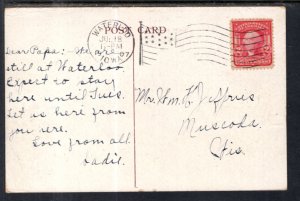 POST CARD
WATERLOO
JUL 18
PM
07
IOWA
Dear Papa: We are
still at Waterloo
Expect to stay
here until Tues.
Let us hear from
you here.
Love from all.
Sadie.
Mr. Wm. H. Jeffries
Muscoda
Wis.